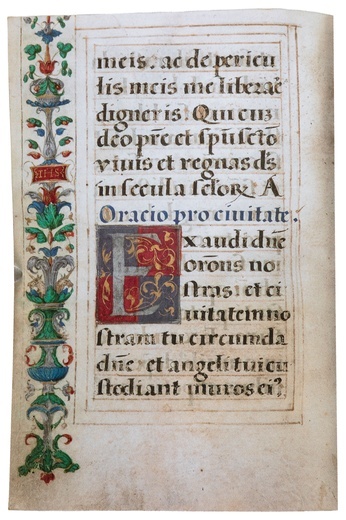 IHS
meis. ac de pericu
lis meis me liberare
digneris. Qui cuz
deo pr̃e et spũ sc̃to
viuis et regnas d̃s
in secula sc̃loꝝ A
Oracio pro ciuitate.
Exaudi dñe
or̃ons no
stras: et ci
uitatem no
stram tu circumda
dñe: et angeli tui cu
stodiant muros eiꝰ